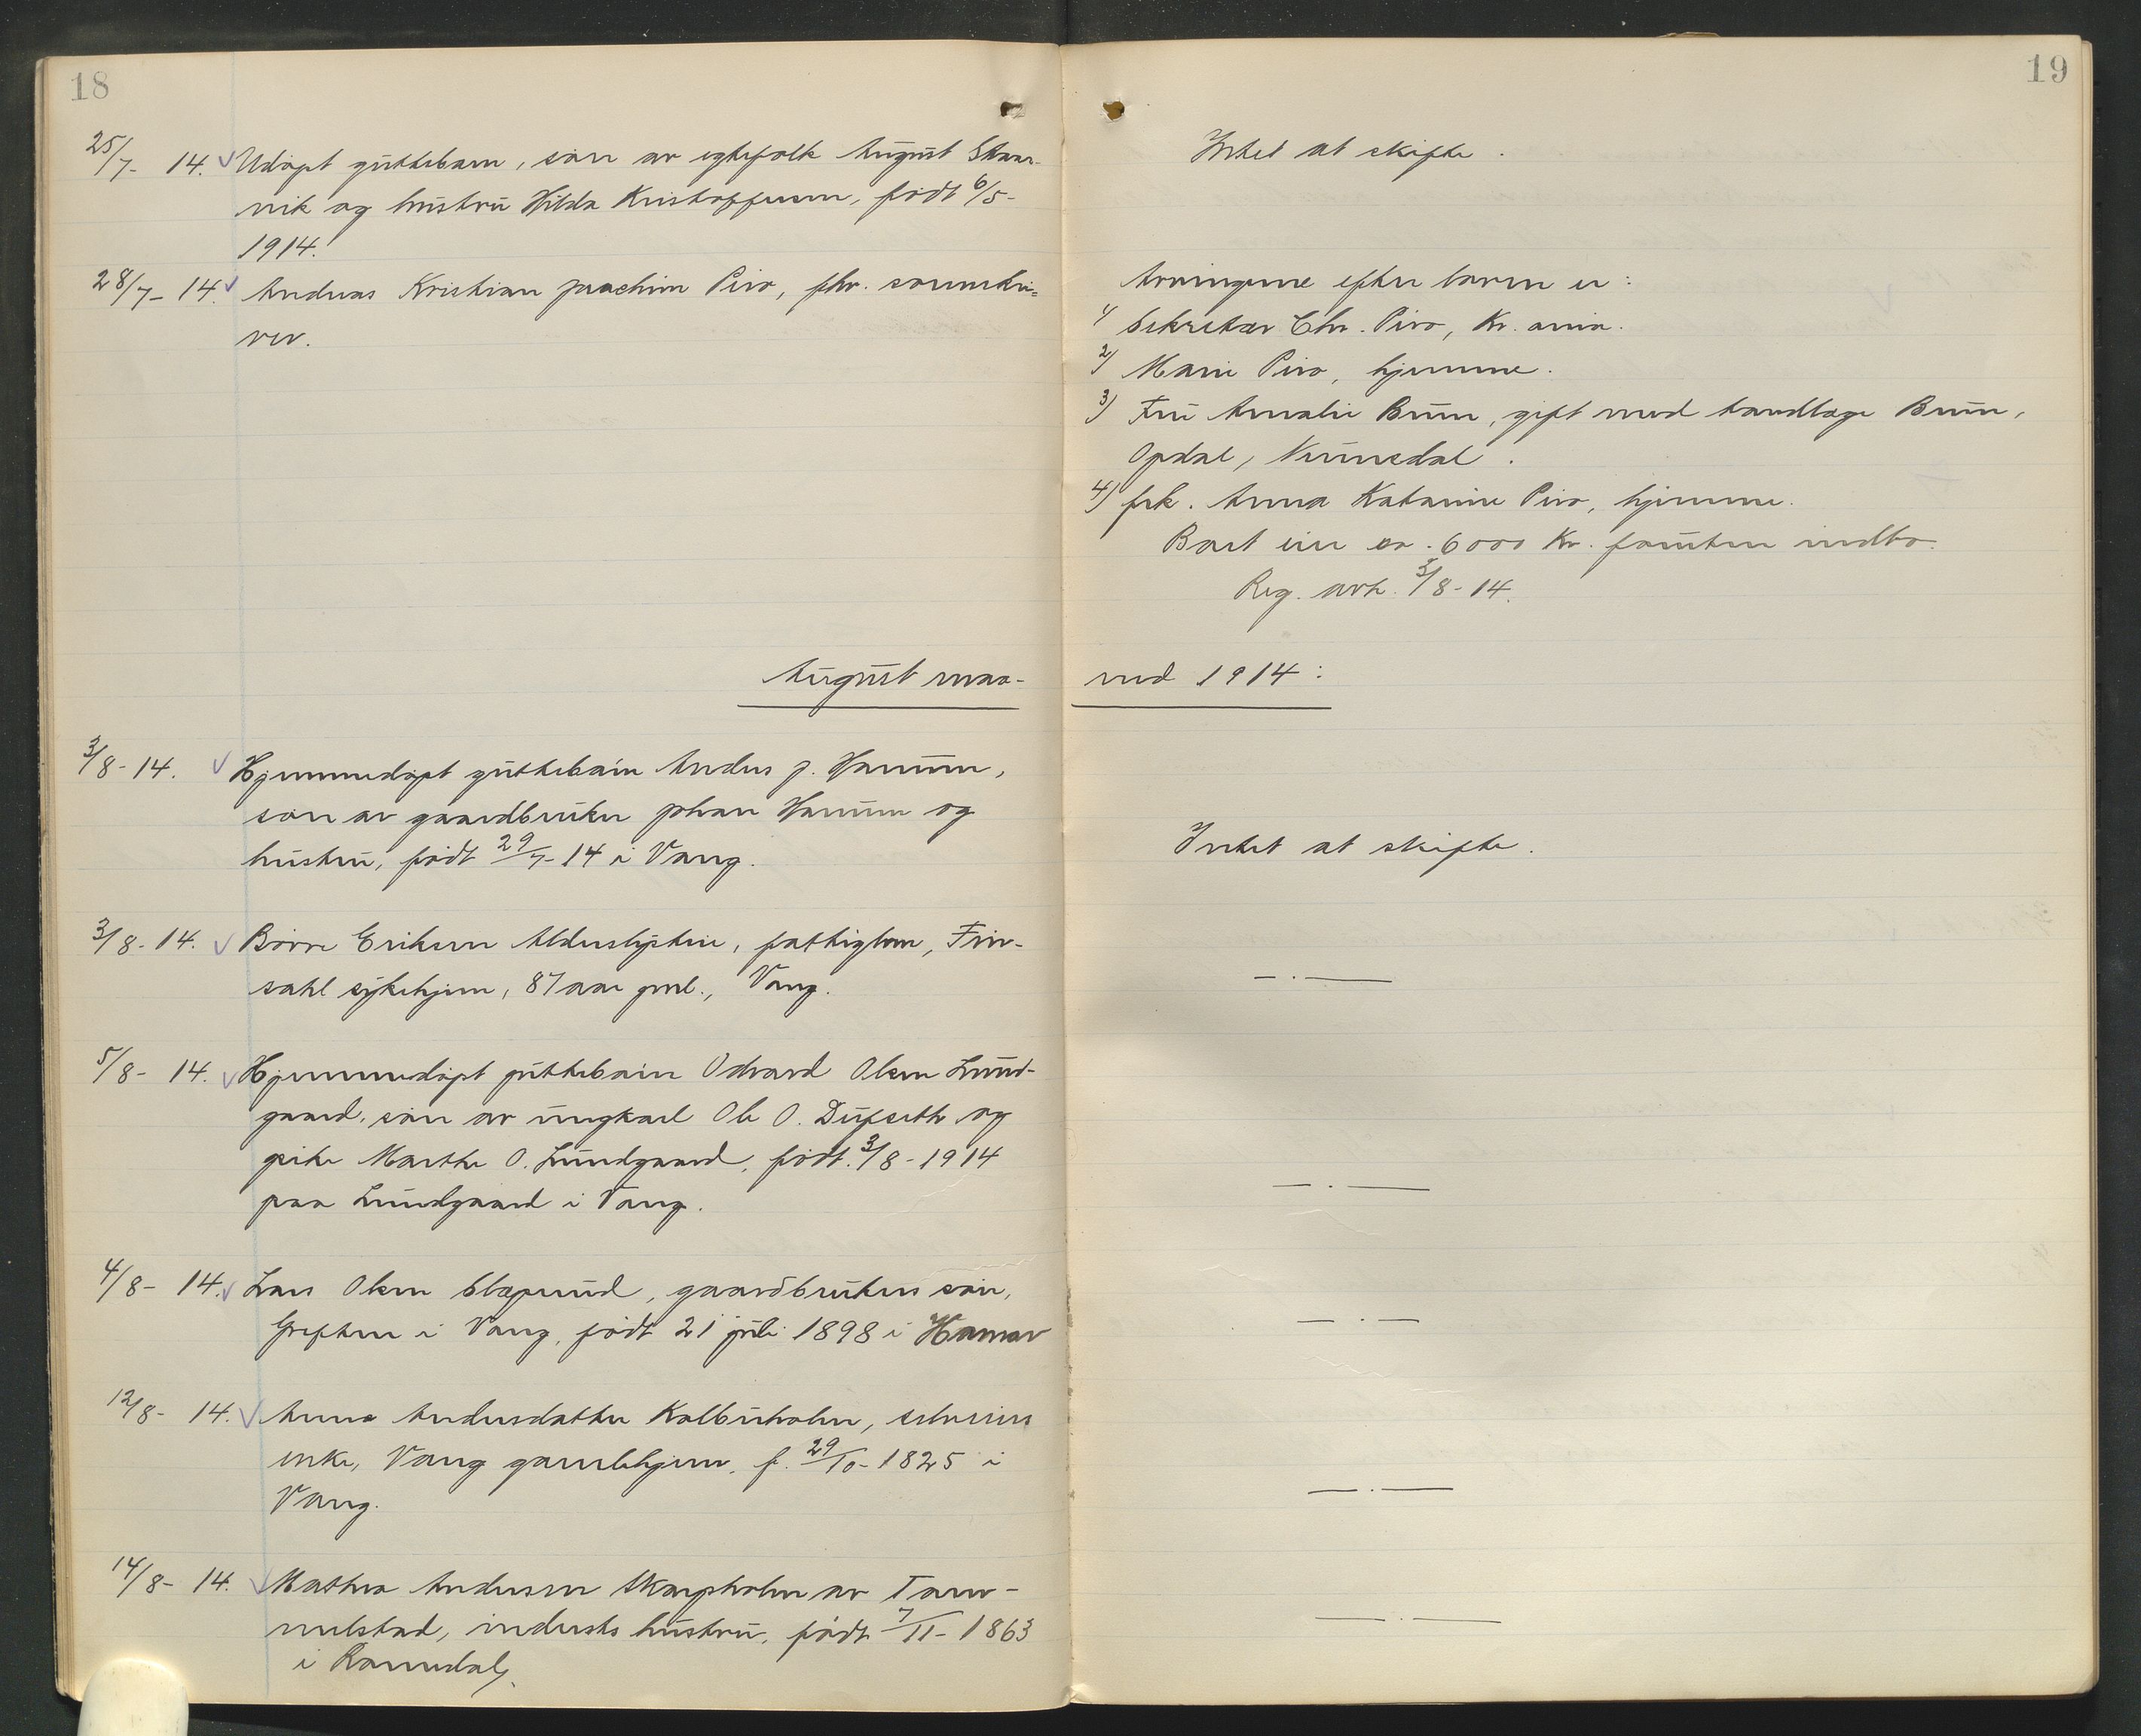 18
25/7- 14. Udöpt guttebarn, sön av egtefolk August Skaar-
vik og hustru Hilda Kristoffersen, födt 6/5-
1914.
28/7- 14. Andreas Kristian Joachim Piro, fhv. sorenskri=
ver.
August maa-
3/8- 14. Hjemmedöpt guttebarn Anders J. Hanum,
sön av gaardbruker Johan Hanum og
hustru, födt 29/7- 14 i Vang.
3/8- 14. Börre Eriksen Alderslysteie, fattiglem, Fin-
sahl sykehjem, 87 aar gml., Vang.
5/8- 14. Hjemmedöpt guttebarn Odvard Olsen Lund-
gaard, sön av ungkarl Ole O. Dufseth og
pike Marthe O. Lundgaard, födt 3/8- 1914
paa Lundgaard i Vang.
4/8- 14. Lars Olsen Slæperud, gaardbrukers sön,
Greften i Vang, födt 21 juli 1898 i Hamar
12/8- 14. Anna Andersdatter Kolbuholm, selveiers
enke, Vang gamlehjem, f. 29/10- 1825 i
Vang.
14/8- 14. Mathea Andersen Skarpholm av Tom-
melstad, indersts hustru, födt 7/11- 1863
i Romedal,
19
Intet at skifte.
Arvingerne efter loven er:
1) Sekretær Chr. Piro, Kr.ania.
2) Marie Piro, hjemme.
3) Fru Amalie Bruun, gift med tandlæge Bruun,
Opdal, Numedal.
4) frk. Anna Katarine Piro, hjemme.
Boet eier ca. 6000 Kr. foruten indbo.
Reg. avh. 3/8- 14.
ned 1914:
Intet at skifte.
— . —
— . —
— . —
— . —
— . —